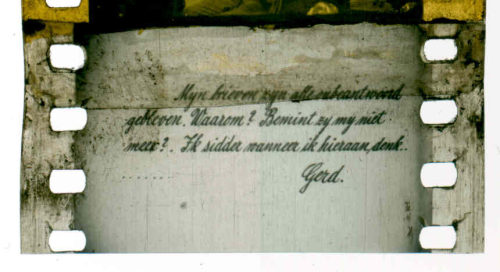 Myn brieven zyn alle onbeantwoord
gebleven. Waarom? Bemint zy my niet
meer?. Ik sidder wanneer ik hieraan, denk..
.......
Gerd.